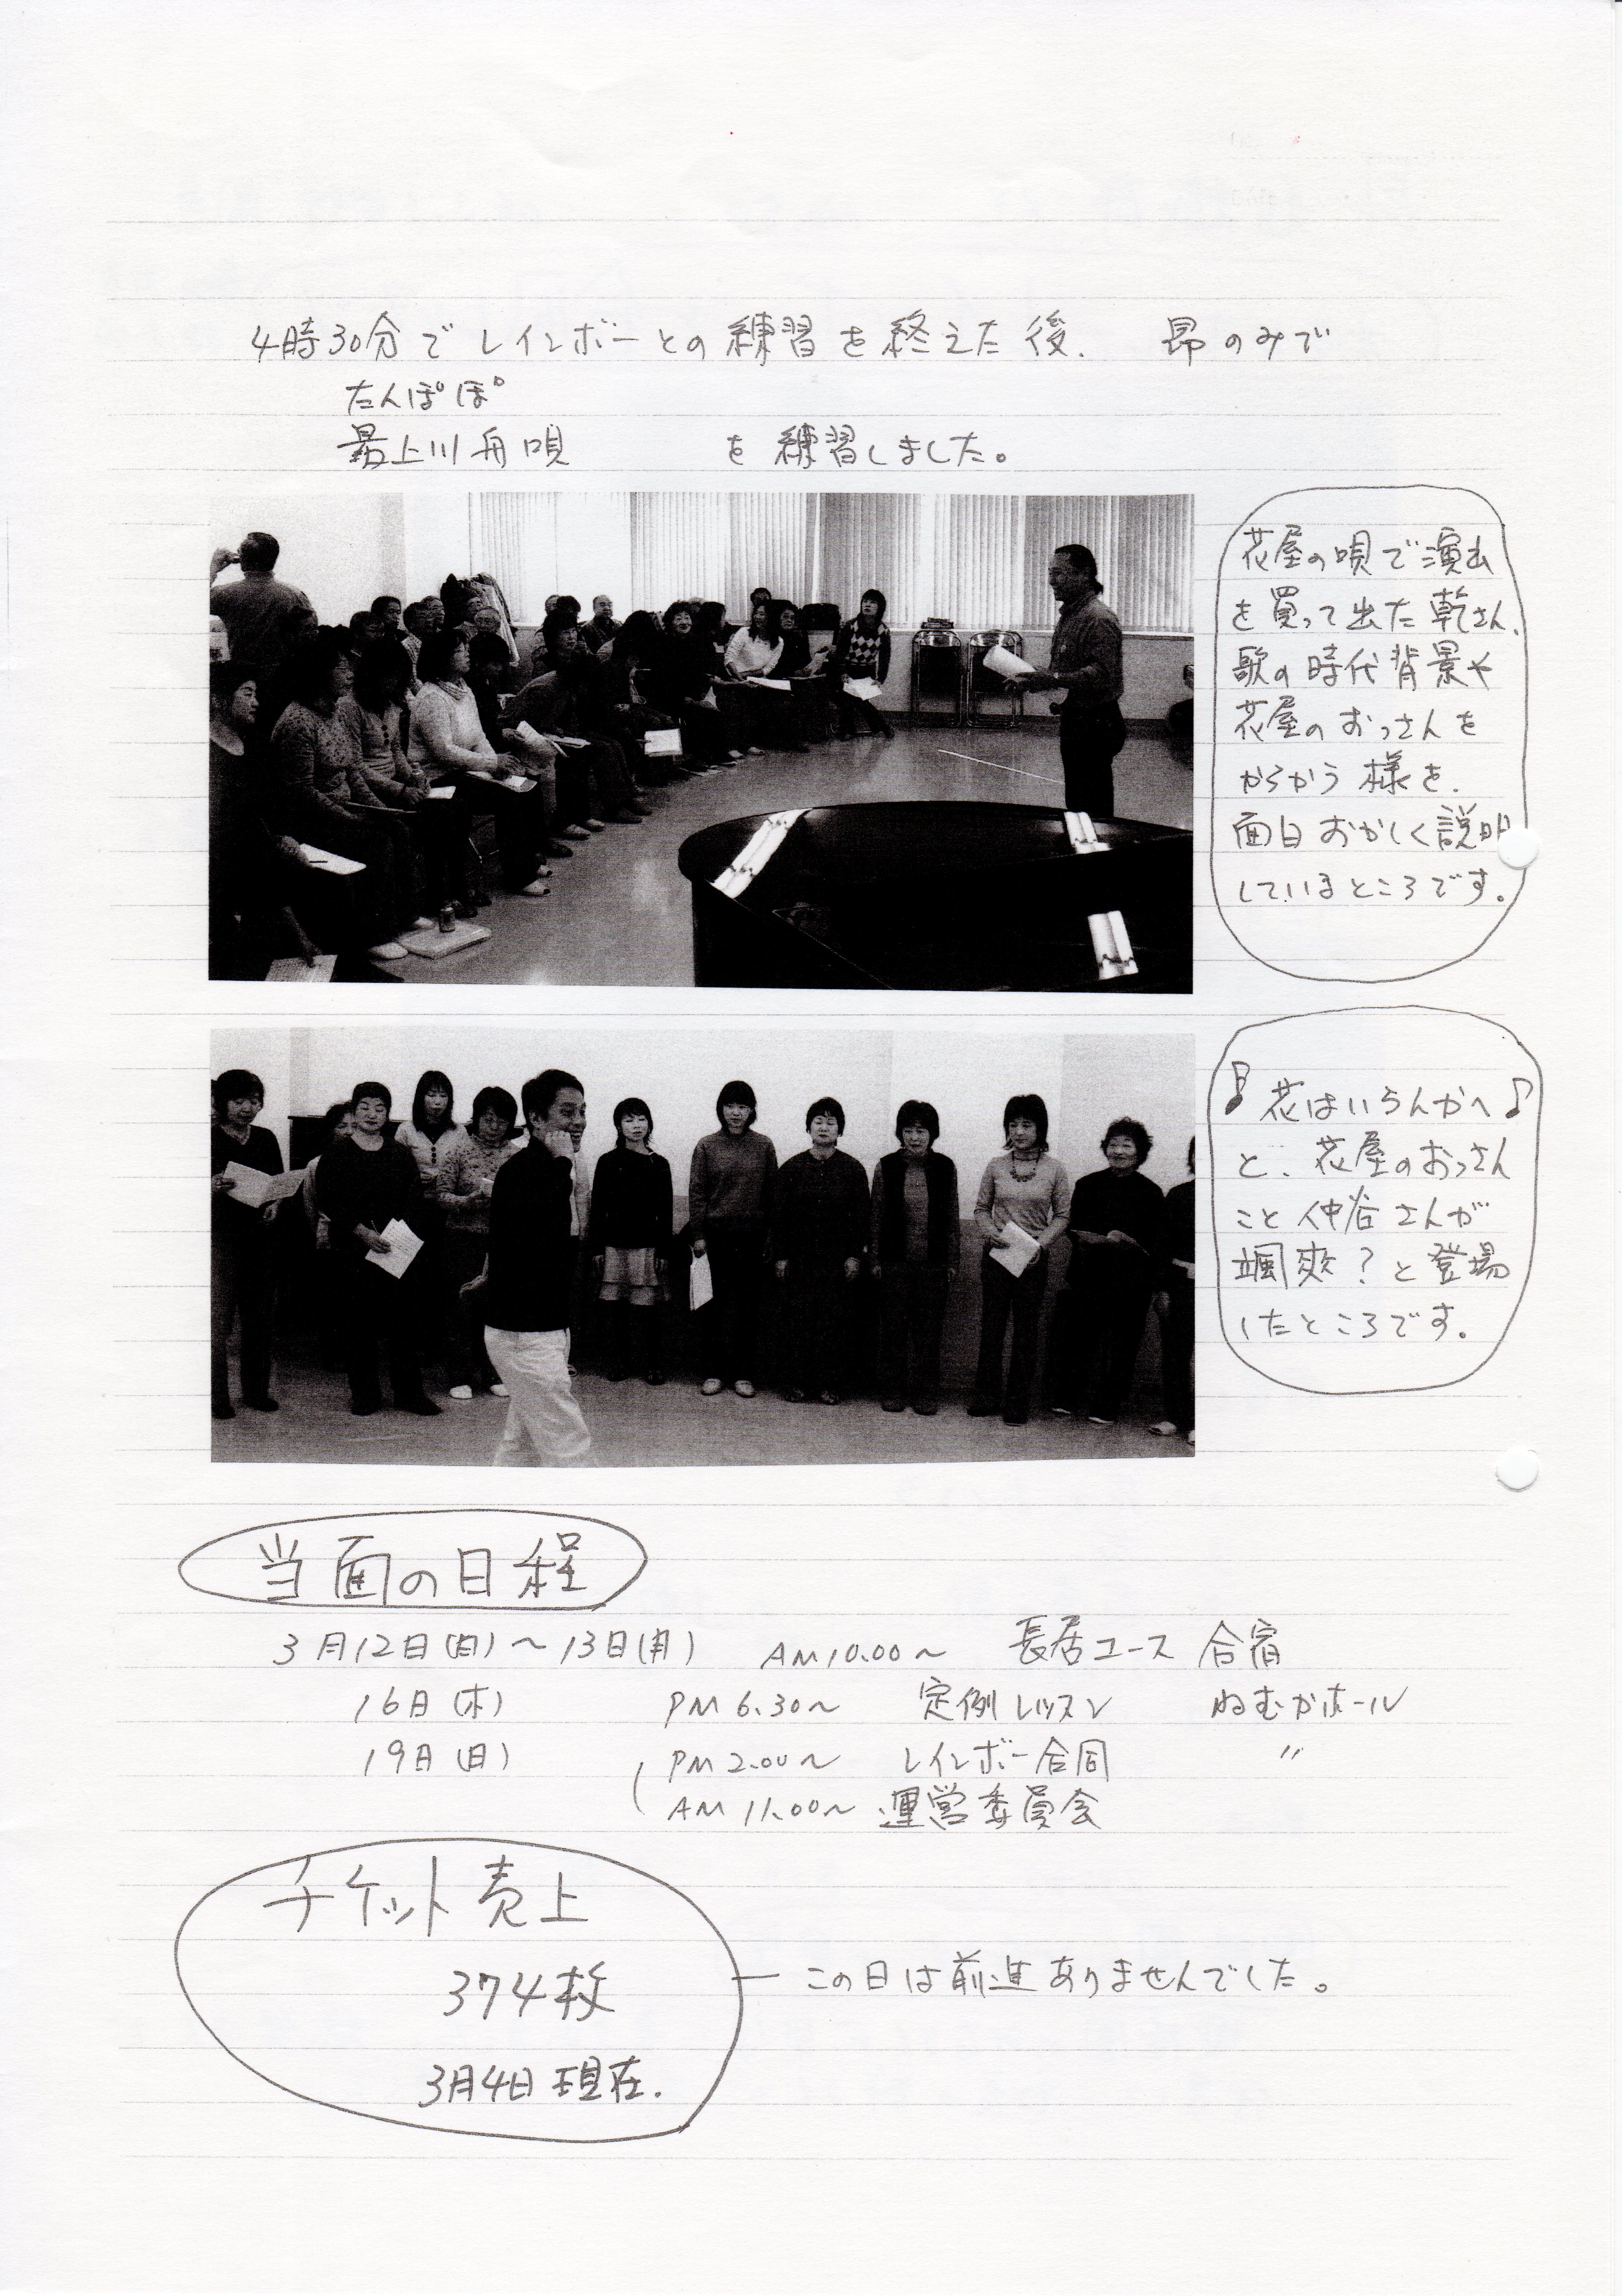 4時30分でレインボーとの練習を終えた後、 昴のみで
たんぽぽ
最上川舟唄 を練習しました。
花屋の唄で演出
を買って出た乾さん、
歌の時代背景や
花屋のおっさんを
からかう様を、
面白おかしく説明
しているところです。
♪花はいらんかへ♪
と、花屋のおっさん
こと仲谷さんが
颯爽？と登場
したところです。
当面の日程
3月12日(日)～13日(月) AM10.00～ 長居ユース 合宿
16日(木) PM6.30～ 定例レッスン ねむかホール
19日(日) PM2.00～ レインボー合同 〃
AM11.00～ 運営委員会
チケット売上
374枚 ― この日は前進ありませんでした。
3月4日現在.